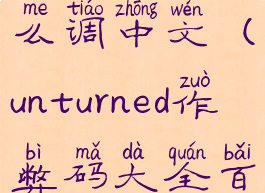 me tiáo zhōng wén
么调中文（
zuò
unturned作
bì mǎ dà quán bǎi
弊码大全百